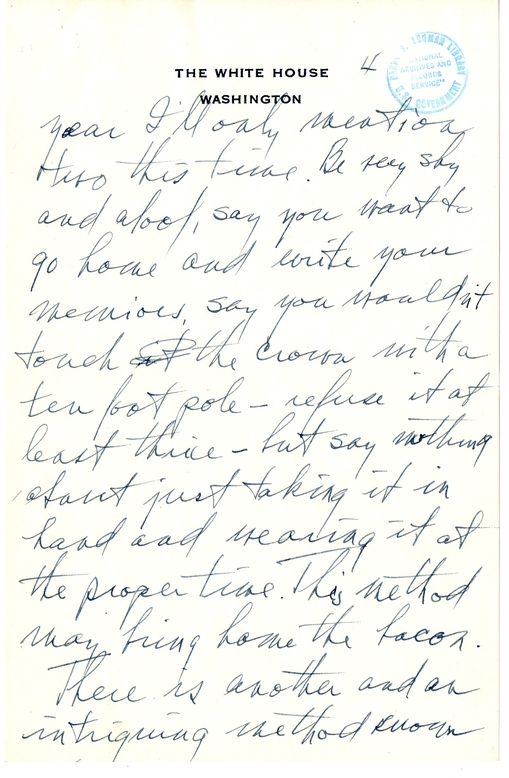 THE WHITE HOUSE
WASHINGTON
4
HARRY S. TRUMAN LIBRARY
"NATIONAL
ARCHIVES AND
RECORDS
SERVICE"
U.S. GOVERNMENT
year I'll only mention
two this time. Be very shy
and aloof, say you want to
go home and write your
memiors, say you wouldn't
touch at the crown with a
ten foot pole – refuse it at
least thrice – but say nothing
about just taking it in
hand and wearing it at
the proper time. This method
may bring home the bacon.
There is another and an
intriguing method known